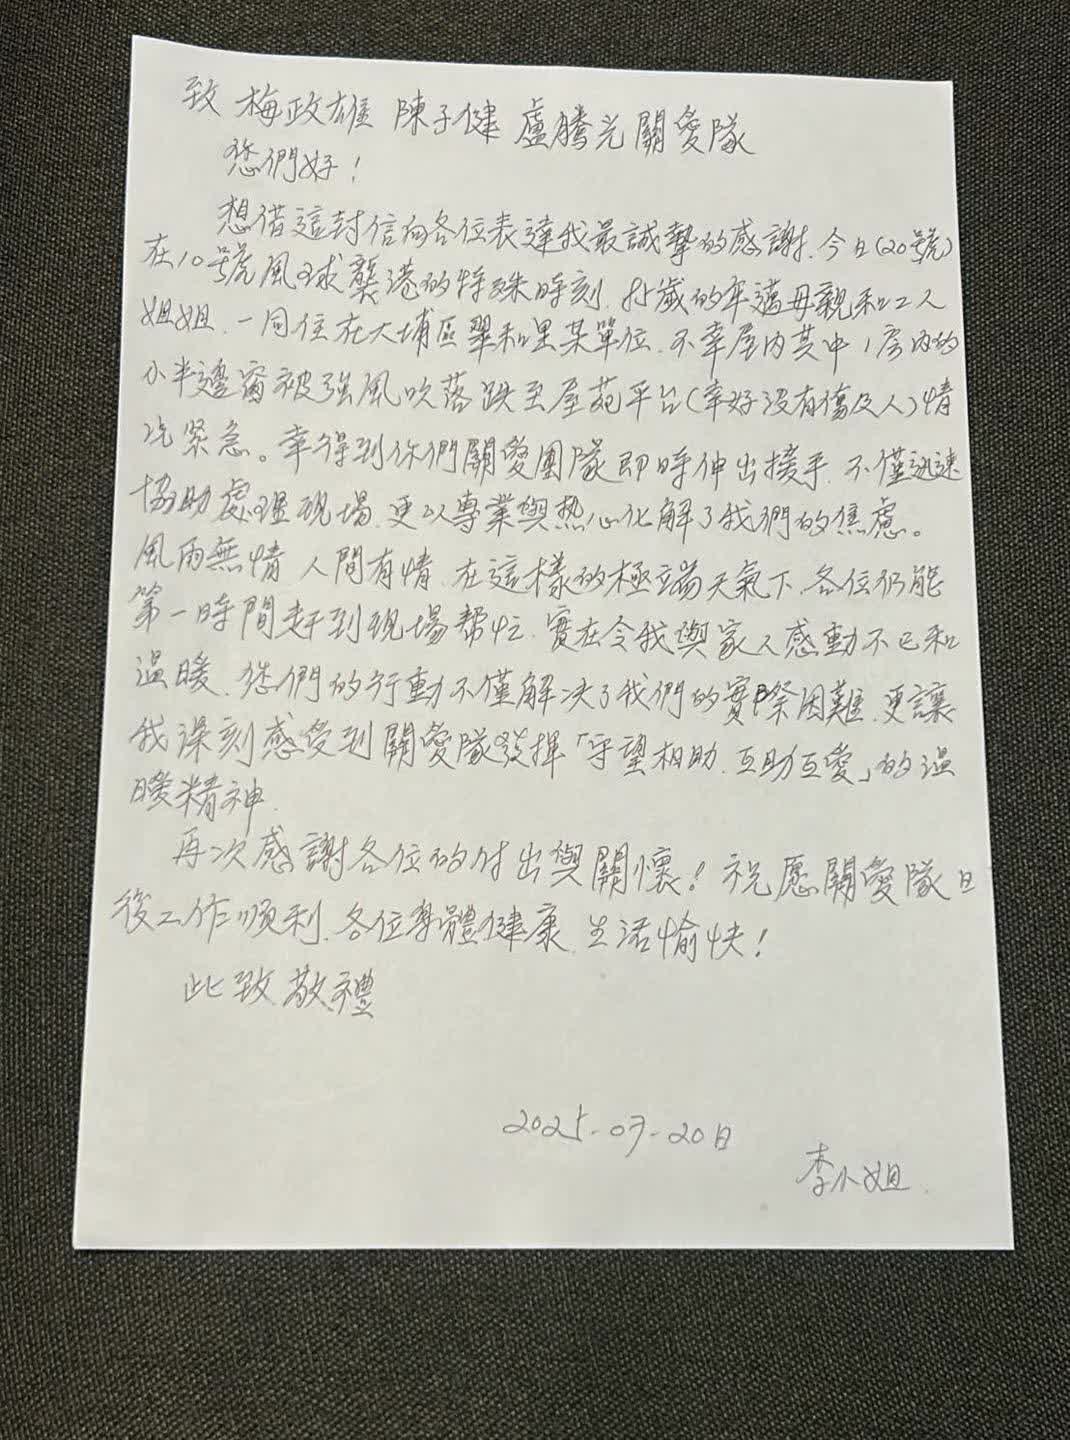 致 梅政雄 陳子健 盧騰光關愛隊
您們好!
想借這封信向各位表達我最誠摯的感謝.今日(20號)
在10號風球襲港的特殊時刻.85歲的年邁母親和工人
姐姐.一同住在大埔區翠和里某單位.不幸屋内其中1房内的
小半邊窗被強風吹落跌至屋苑平台(幸好没有傷及人)情
况緊急。幸得到你們關愛團隊即時伸出援手.不僅迅速
協助處理現場.更以專業與热心化解了我們的焦慮。
風雨無情 人間有情.在這樣的極端天氣下.各位仍能
第一時間赶到現場帮忙.實在令我與家人感動不已和
温暖.您們的行動不僅解决了我們的實際困難.更讓
我深刻感受到關愛隊發揮「守望相助.互助互愛」的温
暖精神.
再次感謝各位的付出與關懷!祝愿關愛隊日
後工作順利.各位身體健康.生活愉快!
此致 敬禮
2025-07-20日
李小姐.